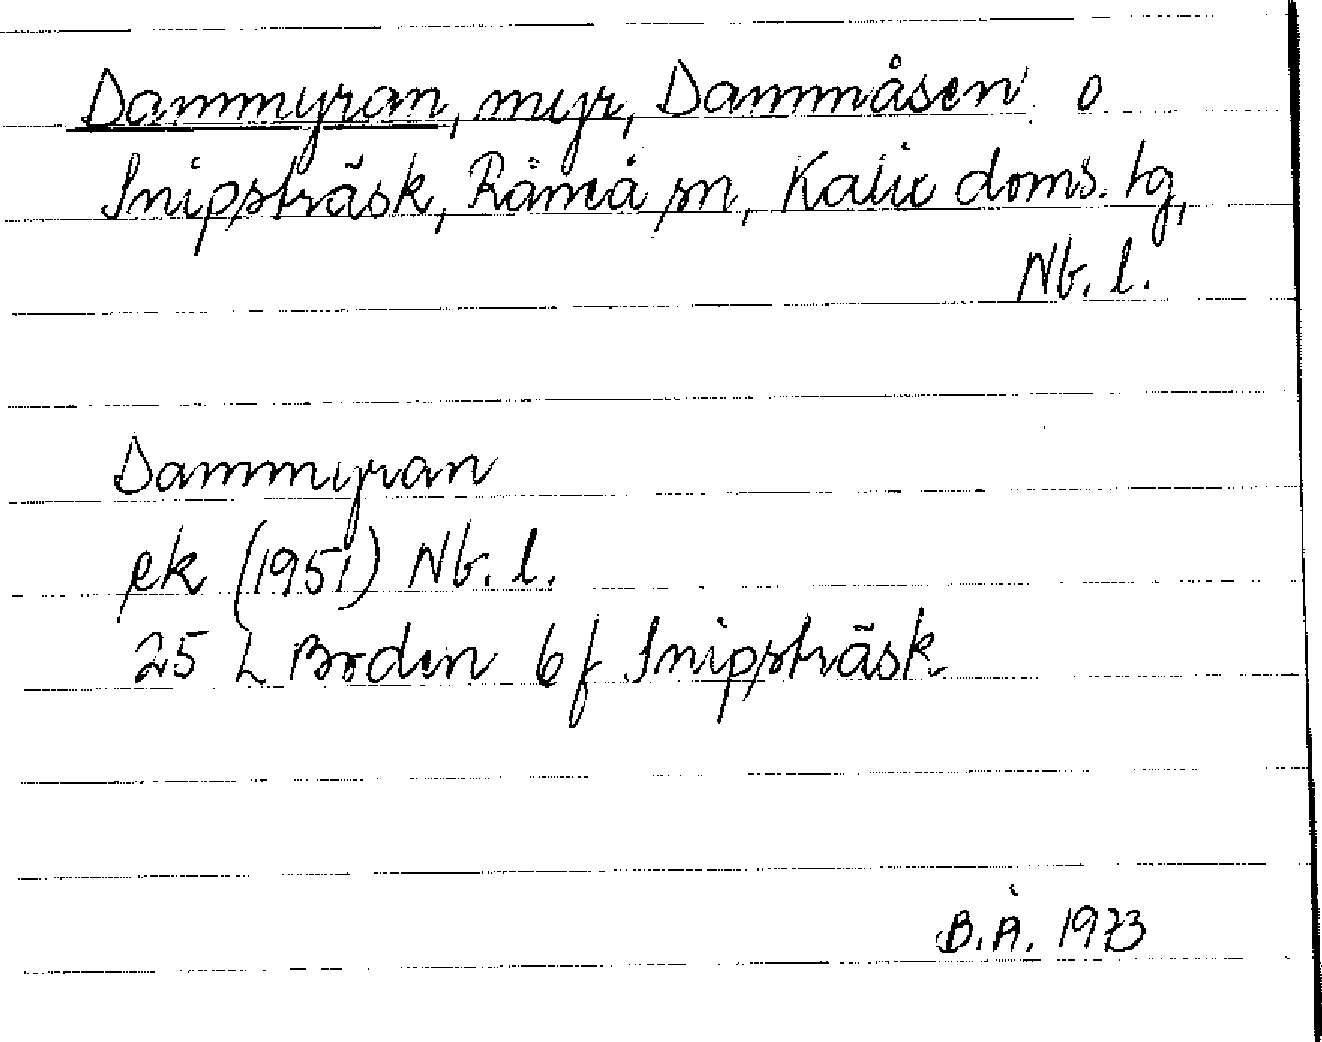 Dammyran, myr, Dammåsen o
Snipsträsk, Råneå sn, Kalix doms. tg,
Nb. l.
Dammyran
ek (1951) Nb. l.
25 L Boden 6 f Snipsträsk
B.Å. 1973